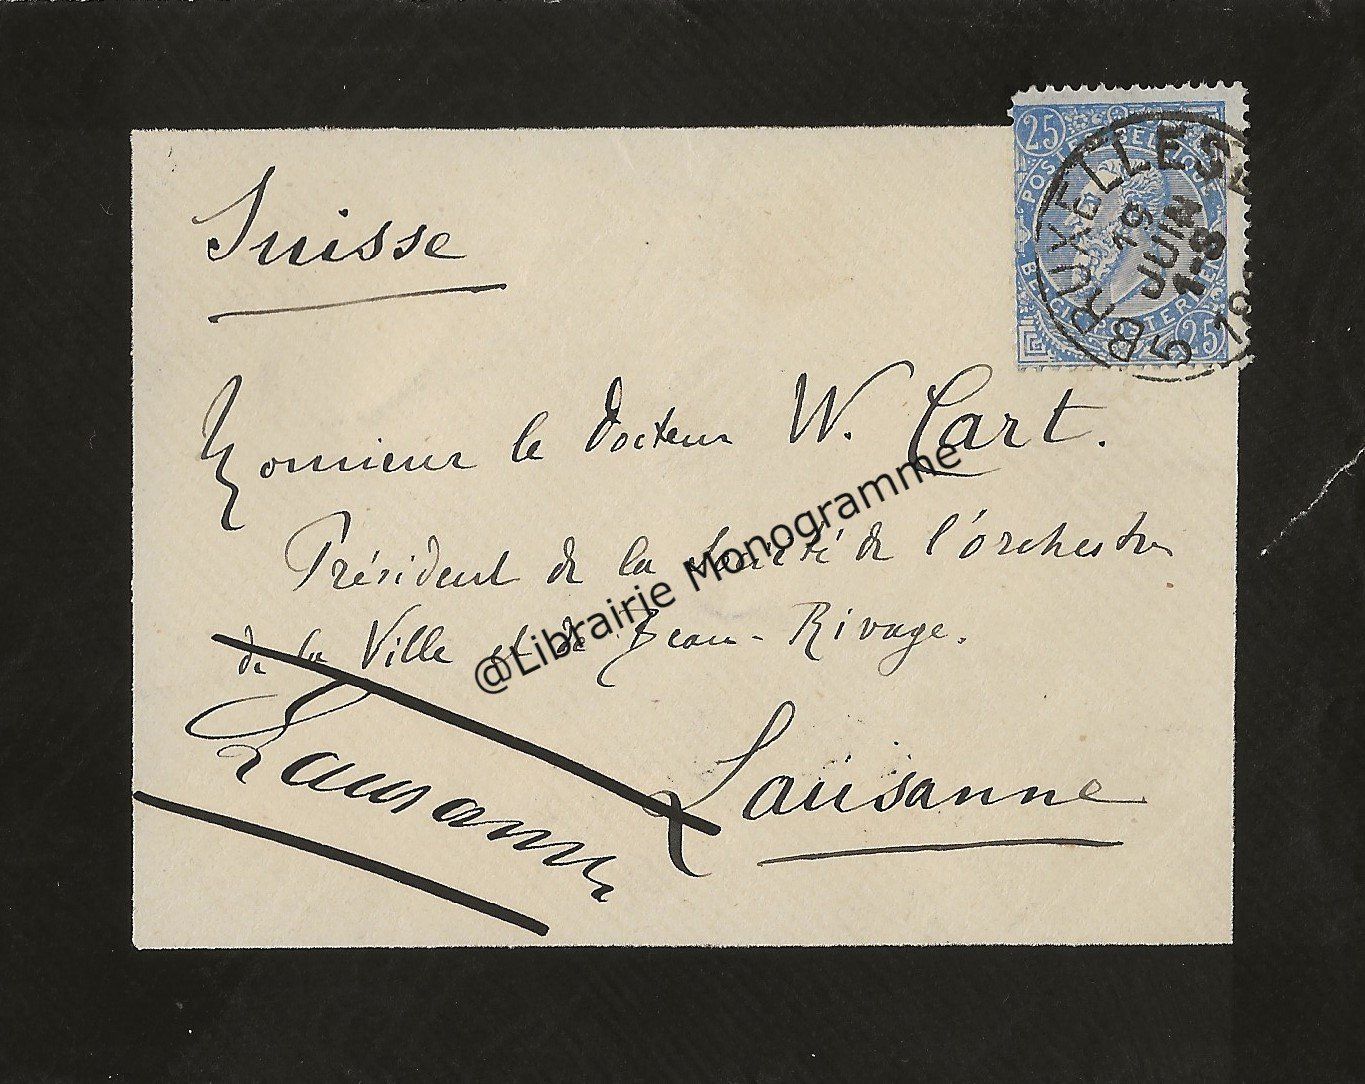 Suisse
25
POSTES BELGIQUE
BELGIE POSTERIJEN
25
BRUXELLES
19
JUIN
1-8
5
Monsieur le docteur W. Cart.
Président de la Société de l'orchestre
de la Ville et de Beau-Rivage.
Lausanne
Lausanne
@Librairie Monogramme